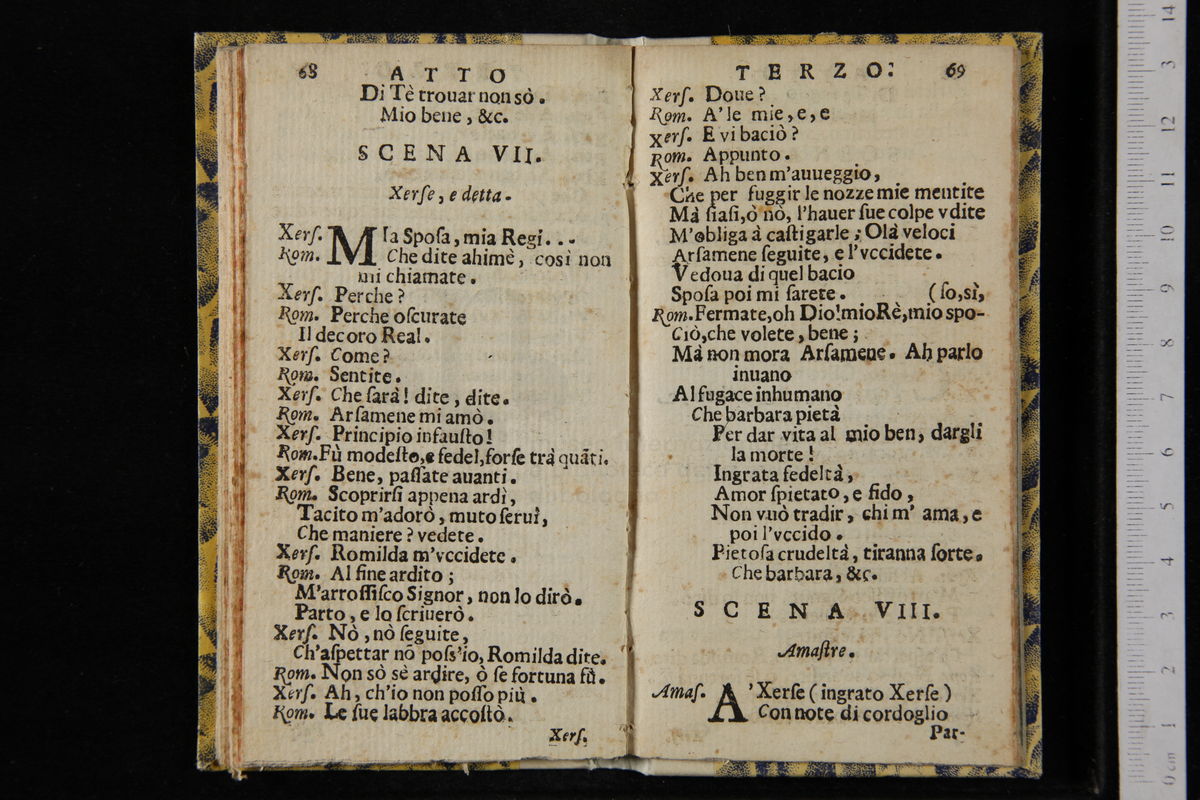 68 ATTO
Di Tè trouar non sò.
Mio bene, &c.
SCENA VII.
Xerſe, e detta.
Xerſ. Mia Spoſa, mia Regi...
Rom. Che dite ahimè, così non
mi chiamate.
Xerſ. Perche?
Rom. Perche oſcurate
Il decoro Real.
Xerſ. Come?
Rom. Sentite.
Xerſ. Che ſarà! dite, dite.
Rom. Arſamene mi amò.
Xerſ. Principio infauſto!
Rom. Fù modeſto, e fedel, forſe trà quāti.
Xerſ. Bene, paſſate auanti.
Rom. Scoprirſi appena ardì,
Tacito m'adorò, muto ſeruì,
Che maniere? vedete.
Xerſ. Romilda m'vccidete.
Rom. Al fine ardito;
M'arroſſiſco Signor, non lo dirò.
Parto, e lo ſcriuerò.
Xerſ. Nò, nò ſeguite,
Ch'aſpettar nō poſs'io, Romilda dite.
Rom. Non sò sè ardire, ò ſe fortuna fù.
Xerſ. Ah, ch'io non poſſo più.
Rom. Le ſue labbra accoſtò.
Xerſ.
TERZO: 69
Xerſ. Doue?
Rom. A' le mie, e, e
Xerſ. E vi baciò?
Rom. Appunto.
Xerſ. Ah ben m'auueggio,
Che per fuggir le nozze mie mentite
Mà ſiaſi, ò nò, l'hauer ſue colpe vdite
M'obliga à caſtigarle; Olà veloci
Arſamene ſeguite, e l'vccidete.
Vedoua di quel bacio
Spoſa poi mi ſarete. (ſo, sì,
Rom. Fermate, oh Dio! mio Rè, mio spo-
Ciò, che volete, bene;
Mà non mora Arſamene. Ah parlo
inuano
Al fugace inhumano
Che barbara pietà
Per dar vita al mio ben, dargli
la morte!
Ingrata fedeltà,
Amor ſpietato, e fido,
Non vuò tradir, chi m' ama, e
poi l'vccido.
Pietoſa crudeltà, tiranna ſorte.
Che barbara, &c.
SCENA VIII.
Amaſtre.
Amaſ. A' Xerſe (ingrato Xerſe)
Con note di cordoglio
Par-
14
3
12
11
10
9
8
7
6
5
4
3
2
1
0 cm